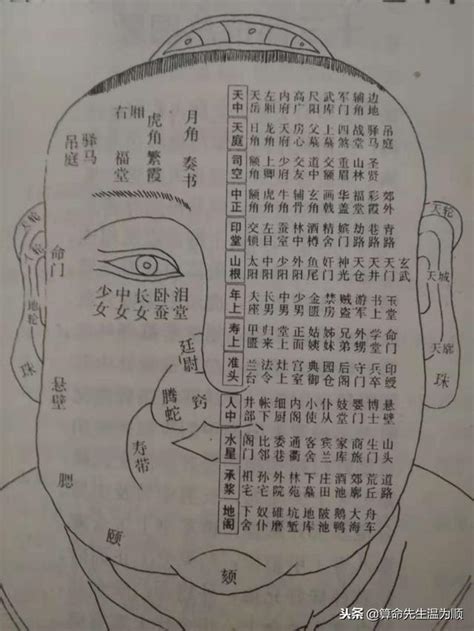 天中 天岳 左厢 内府 高广 尺阳 武库 军门 辅角 边地
天庭 日角 龙角 天府 房心 父墓 上墓 四煞 战堂 驿马 吊庭
司空 额角 上卿 少府 交友 道中 交额 重眉 山林 圣贤
中正 额角 虎角 牛角 辅骨 玄角 画戟 华盖 福堂 彩霞 郊外
印堂 交锁 左目 蚕室 林中 酒樽 精舍 嫔门 劫路 巷路 青路
山根 太阳 中阳 少阳 外阳 鱼尾 奸门 神光 天仓 天井 天门 玄武
年上 夫座 长男 中男 少男 金匮 禁房 贼盗 游军 书上 玉堂
寿上 甲匮 归来 堂上 正面 姑姨 姊妹 兄弟 外甥 命门
准头 兰台 法令 灶上 宫室 典御 园仓 后阁 守门 兵卒 印绶
人中 井部 帐下 细厨 内阁 小使 仆从 妓堂 婴门 博士 悬壁
水星 阁门 比邻 委巷 通衢 客舍 宾兰 家库 商旅 生门 山头
承浆 祖宅 孙宅 外院 林苑 下墓 庄田 酒池 郊廓 荒丘 道路
地阁 下舍 奴仆 碓磨 坑堑 地库 陂池 鹅鸭 大海 舟车
右厢
虎角
月角
吊庭
驿马
福堂
繁霞
奏书
天轮
人轮
地轮
珠
命门
少女
中女
长女
卧蚕
泪堂
廷尉
窍
腾蛇
寿带
悬壁
腮
颐
颏
天轮
天城
天廓
珠
头条 @算命先生温为顺